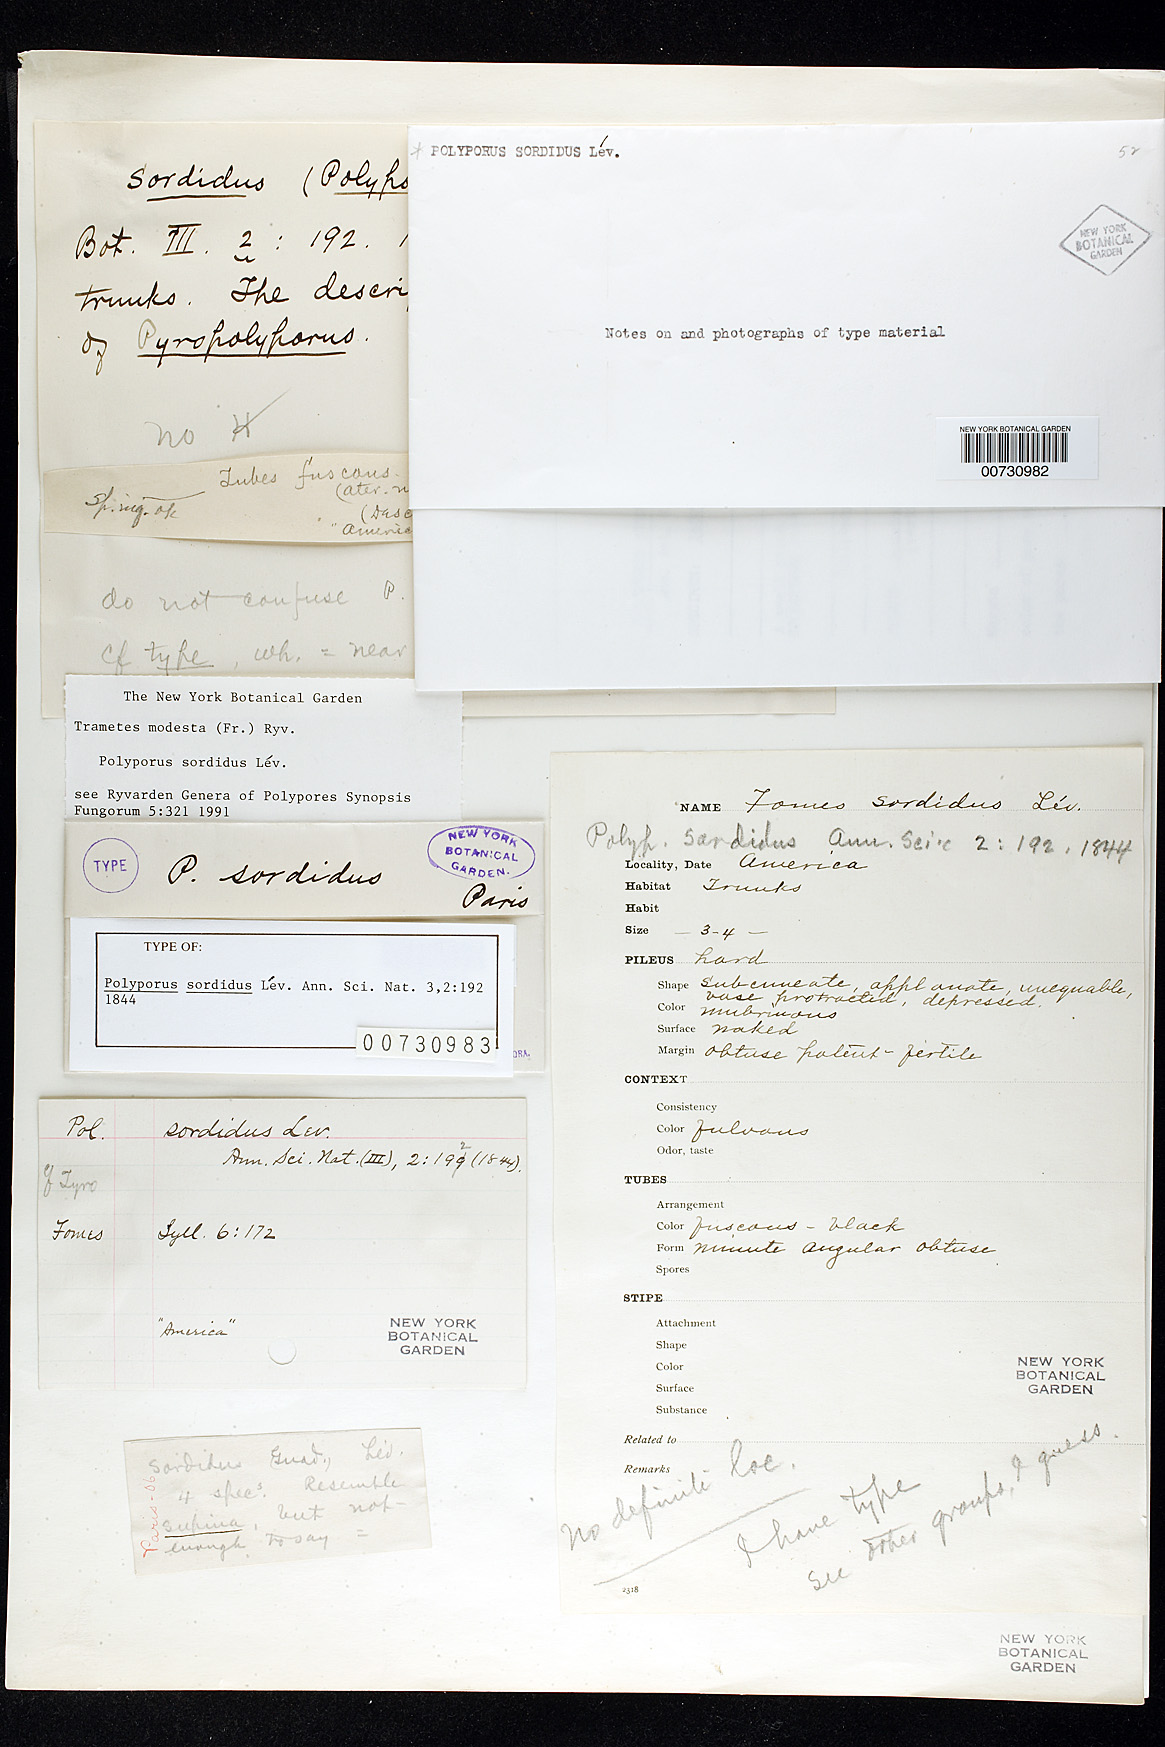 Sordidus (Polypo
Bot. III. 2 : 192. 1
trunks. The descri
of Pyropolyporus.
no H
Tubes fuscous-
(ater. n
Sp. mg. ok
(Desc
"America
do not confuse P.
Cf type, wh. = near
* POLYPORUS SORDIDUS Lév.
52
NEW YORK
BOTANICAL
GARDEN
Notes on and photographs of type material
NEW YORK BOTANICAL GARDEN
00730982
The New York Botanical Garden
Trametes modesta (Fr.) Ryv.
Polyporus sordidus Lév.
see Ryvarden Genera of Polypores Synopsis
Fungorum 5:321 1991
TYPE
P. sordidus
NEW YORK
BOTANICAL
GARDEN.
Paris
TYPE OF:
Polyporus sordidus Lév. Ann. Sci. Nat. 3,2:192
1844
00730983
DRA.
Pol. sordidus Lev.
Ann. Sci. Nat. (III), 2:192 (1844).
Fomes Syll. 6:172
"America"
NEW YORK
BOTANICAL
GARDEN
Sordidus Guad., Lév.
4 specs. Resemble
supina, but not
enough to say =
Paris-06
NAME Fomes sordidus Lév.
Polyp. sordidus Ann. Sci. 2:192, 1844
Locality, Date America
Habitat Trunks
Habit
Size — 3-4 —
PILEUS hard
Shape Subcuneate, applanate, unequable,
base protracted, depressed.
Color umbrinous
Surface naked
Margin obtuse patent - fertile
CONTEXT
Consistency
Color fulvous
Odor, taste
TUBES
Arrangement
Color fuscous - black
Form minute angular obtuse
Spores
STIPE
Attachment
Shape
Color
Surface
Substance
NEW YORK
BOTANICAL
GARDEN
Related to
Remarks
No definite loc.
I have type
See other groups, I guess.
2318
NEW YORK
BOTANICAL
GARDEN